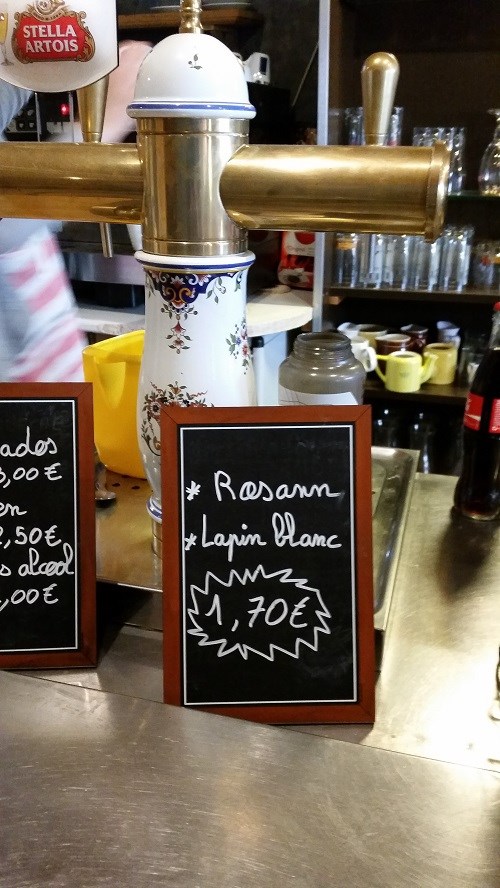 STELLA
ARTOIS
ades
,00 €
en
2,50 €
s alcool
,00 €
* Rosann
* Lapin blanc
1,70 €